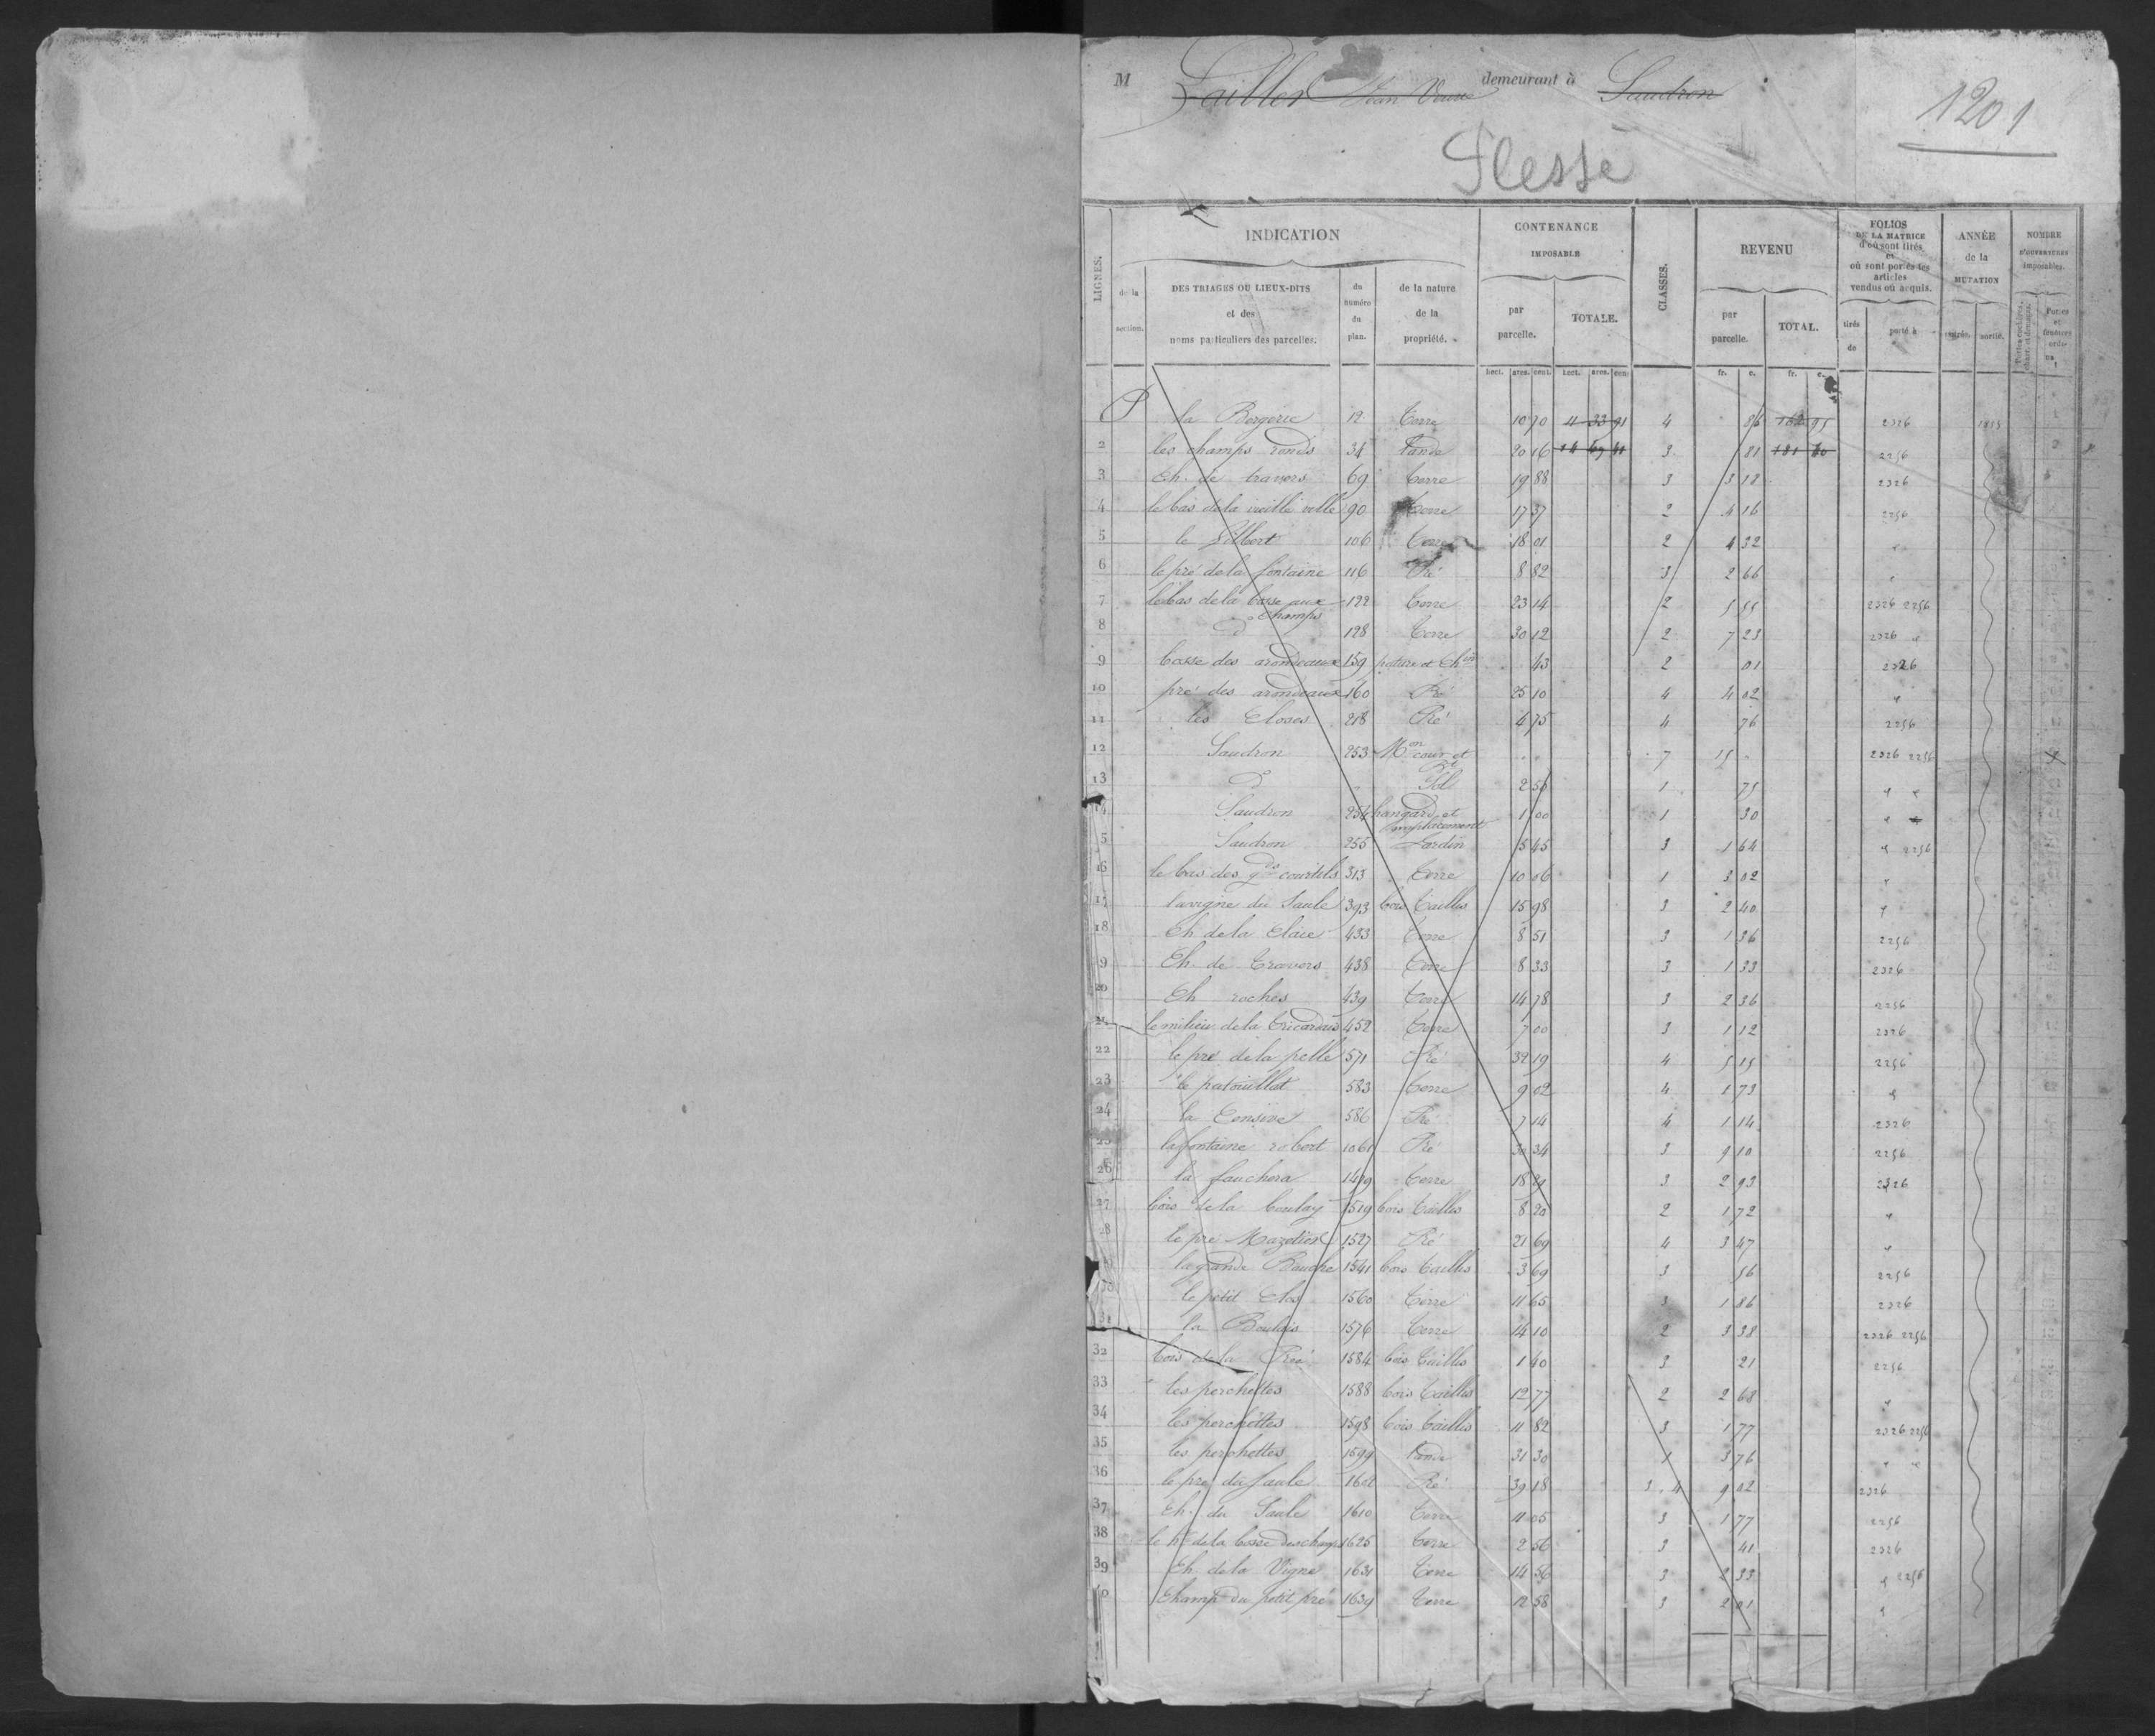 M Jean Veuve demeurant à Saudron
1201
Plessé
LIGNES. INDICATION CONTENANCE IMPOSABLE CLASSES. REVENU FOLIOS DE LA MATRICE d'où sont tirés et où sont portés les articles vendus ou acquis. ANNÉE de la MUTATION NOMBRE D'OUVERTURES imposables.
de la section. DES TRIAGES OU LIEUX-DITS et des noms particuliers des parcelles. du numéro du plan. de la nature de la propriété. par parcelle. TOTALE. par parcelle. TOTAL. tirés de porté à entrée. sortie.
hect. ares. cent. hect. ares. cent. fr. c. fr. c.
P la Bergerie 12 Terre 10 70 4 33 91 4 86 162 95 2326
2 les champs ronds 34 Lande 20 16 3 81 181 80 2256
3 Ch. de travers 69 Terre 19 88 3 3 18 2326
4 le bas de la vieille ville 90 Terre 17 37 2 4 16 2256
5 le 106 Terre 18 01 2 4 32 "
6 le pré de la fontaine 116 Pré 8 82 3 2 66 "
7 le bas de la basse aux champs 122 Terre 23 14 2 5 55 2326 2256
8 do 128 Terre 30 12 2 7 23 2326 "
9 basse des arondeaux 159 pature et Chin 43 2 01 2326
10 pré des arondeaux 160 Pré 25 10 4 4 02 "
11 les Closes 218 Pré 4 75 4 76 2256
12 Saudron 253 Mon cour et 7 15 " 2326 2256
13 do Sol 2 50 1 75 " "
14 Saudron 254 hangard et emplacement 1 00 1 30 " "
5 Saudron 255 Jardin 5 45 3 1 64 " 2256
16 le bas des gds courtils 313 Terre 10 06 1 3 02 "
17 la vigne du Saule 393 bois Taillis 15 98 3 2 40 "
18 Ch de la Claie 433 Terre 8 51 3 1 36 2256
9 Ch. de Travers 438 Terre 8 33 3 1 33 2326
20 Ch roches 439 Terre 14 78 3 2 36 2256
21 le milieu de la 452 Terre 7 00 3 1 12 2326
22 le pré de la pelle 571 Pré 32 19 4 5 15 2256
23 le patouillat 583 Terre 9 02 4 1 73 "
24 la Censive 586 Pré 7 14 4 1 14 2326
25 la fontaine robert 1061 Pré 30 34 3 9 10 2256
26 la fauchera Terre 3 2 93 2326
27 bois de la boulay 1519 bois Taillis 8 20 2 1 72 "
8 le pré 1527 Pré 21 69 4 3 47 "
la grande Bauche 1541 bois Taillis 3 69 3 56 2256
30 le petit Clos 1560 Terre 11 65 3 1 86 2326
31 la Boulais 1576 Terre 14 10 2 3 38 2326 2256
32 bois de la Prée 1584 bois Taillis 1 40 3 21 2256
33 les perchettes 1588 bois Taillis 12 77 2 2 68 "
34 les perchettes 1598 bois Taillis 11 82 3 1 77 2326 2256
35 les perchettes 1599 Lande 31 30 1 3 76 " "
36 le pré du Saule 1602 Pré 39 18 3 . 4 9 02 2326
37 Ch. du Saule 1610 Terre 11 05 3 1 77 2256
38 le ht de la basse des champs 1625 Terre 2 56 3 41 2326
39 Ch. de la Vigne 1631 Terre 14 56 3 2 33 " 2256
40 Champ du petit pré 1639 Terre 12 58 3 2 01 "